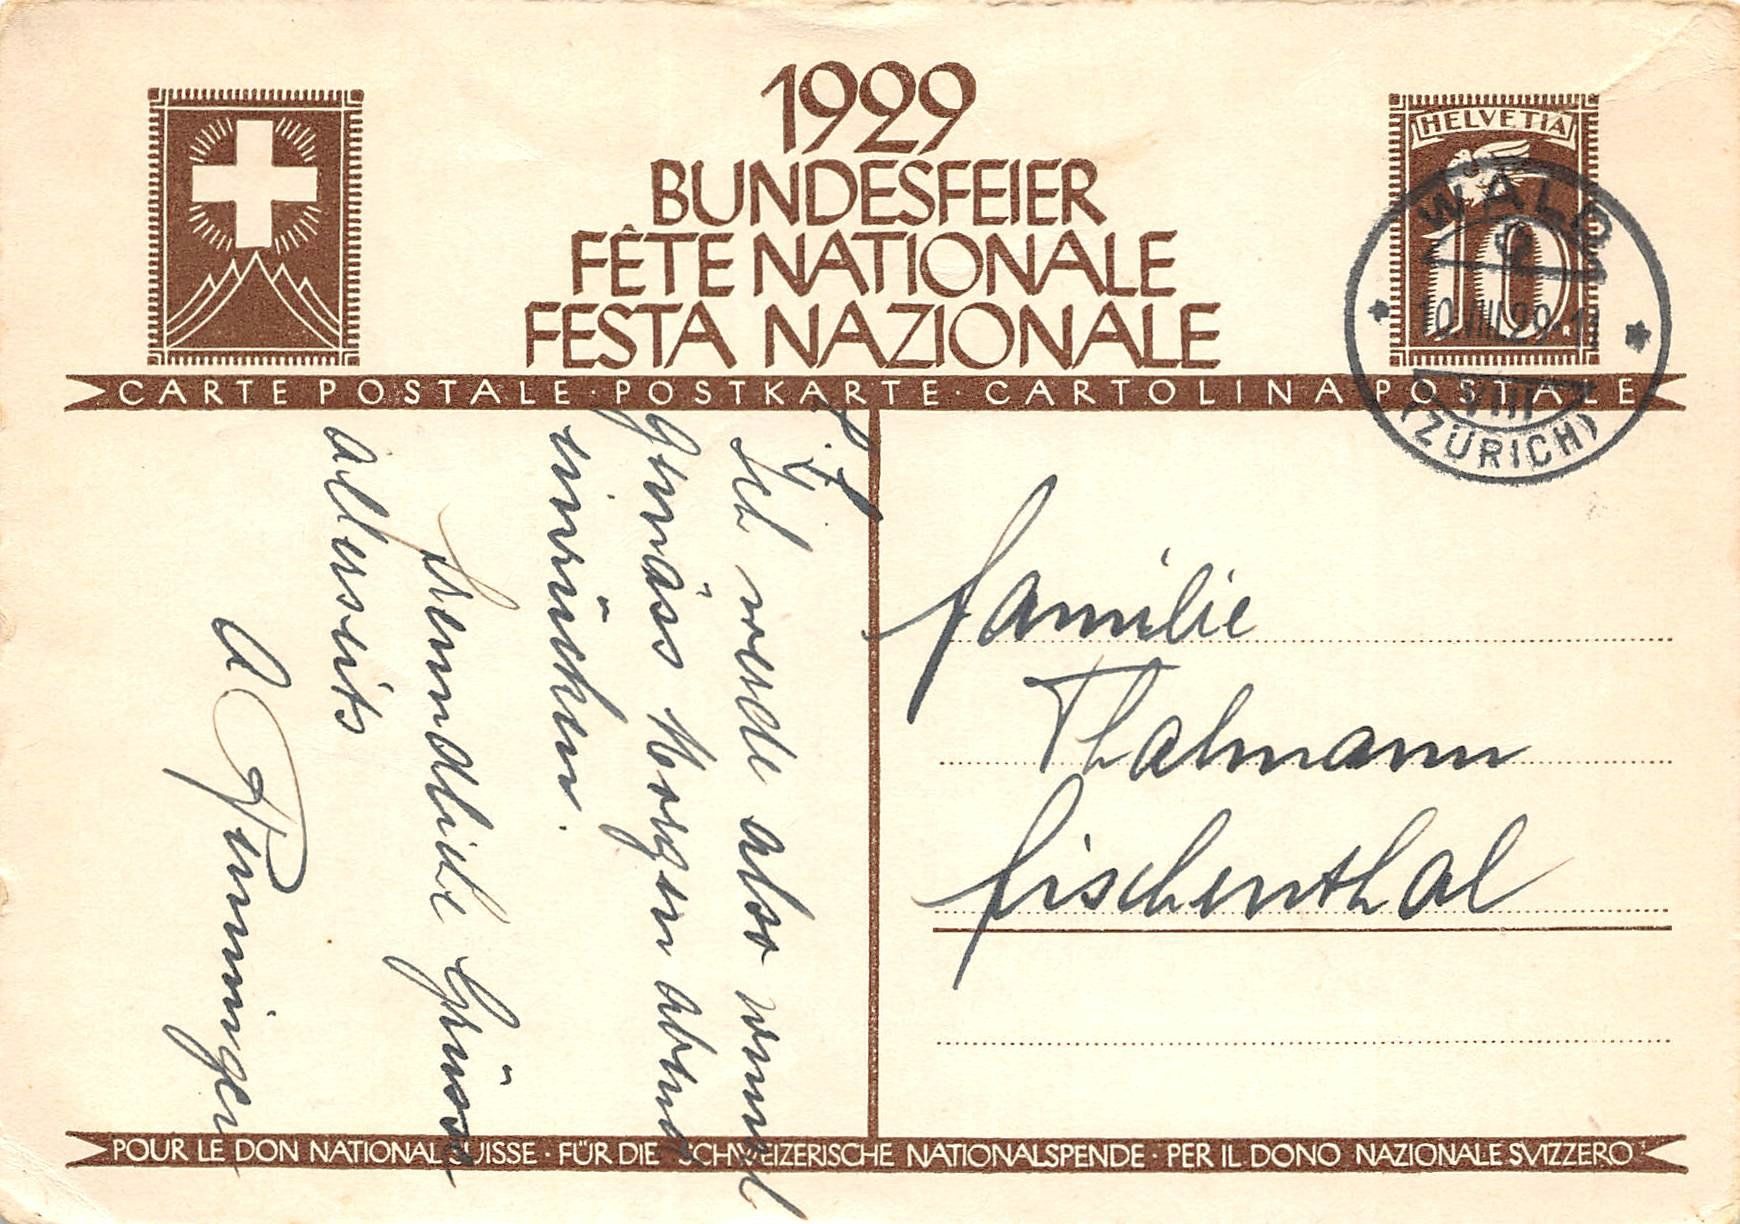 1929
BUNDESFEIER
FÊTE NATIONALE
FESTA NAZIONALE
HELVETIA
10
WALD
10.VIII.29-
VIII
(ZÜRICH)
CARTE POSTALE · POSTKARTE · CARTOLINA POSTALE
Ich werde also wenn
Gemäss Morgen abend
einrücken.
Freundliche Grüsse
allerseits
A
Familie
Thalmann
Fischenthal
POUR LE DON NATIONAL SUISSE · FÜR DIE SCHWEIZERISCHE NATIONALSPENDE · PER IL DONO NAZIONALE SVIZZERO